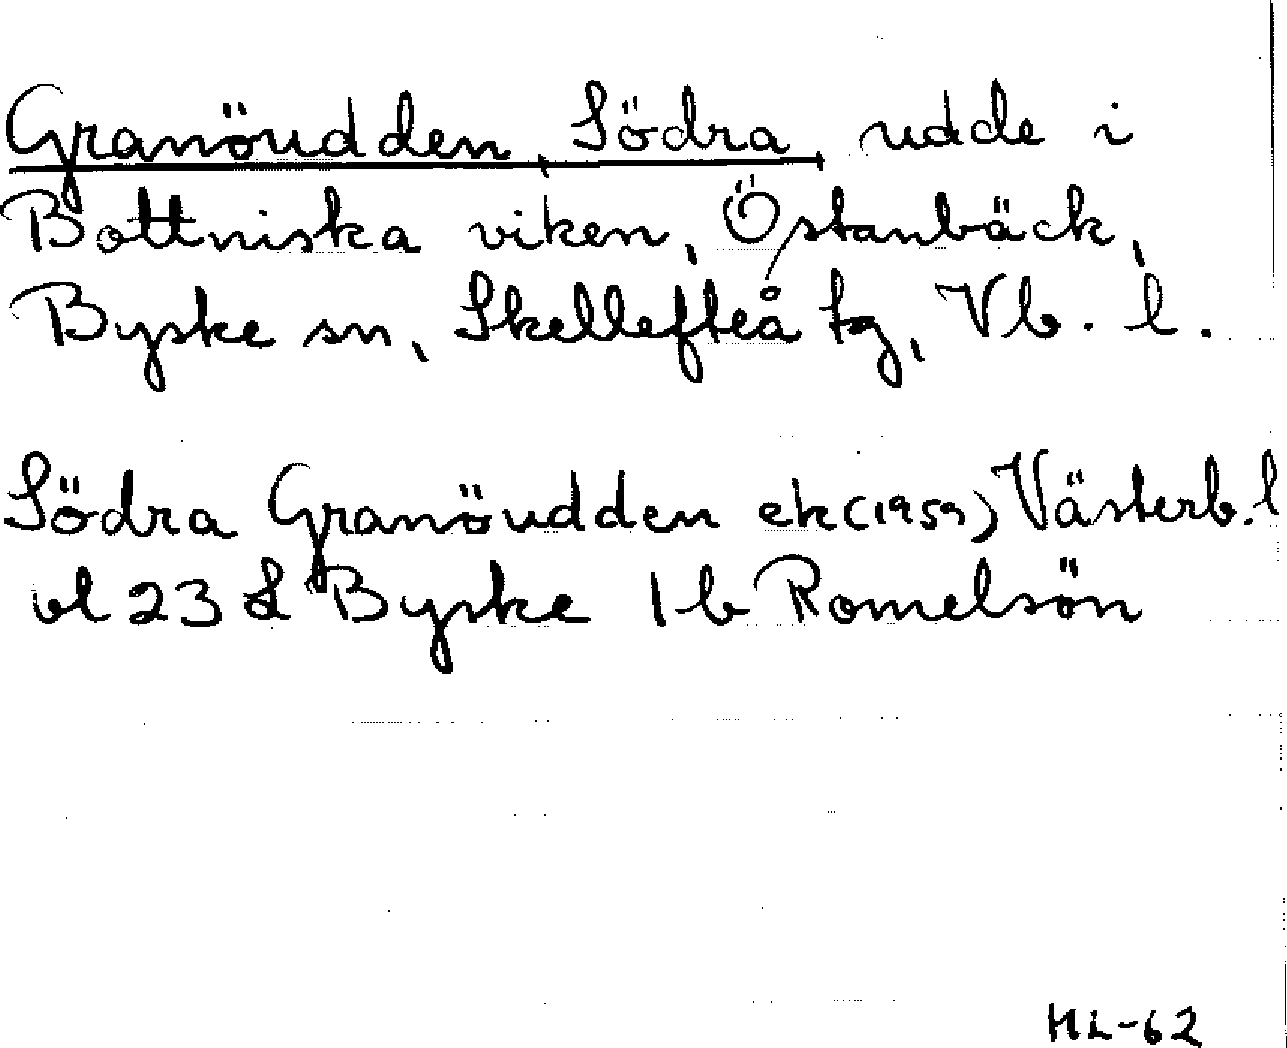 Granöudden, Södra, udde i
Bottniska viken, Östanbäck,
Byske sn, Skellefteå tg, Vb. l.
Södra Granöudden ek (1959) Västerb. l
bl 23 L Byske 1 b Romelsön
HL-62